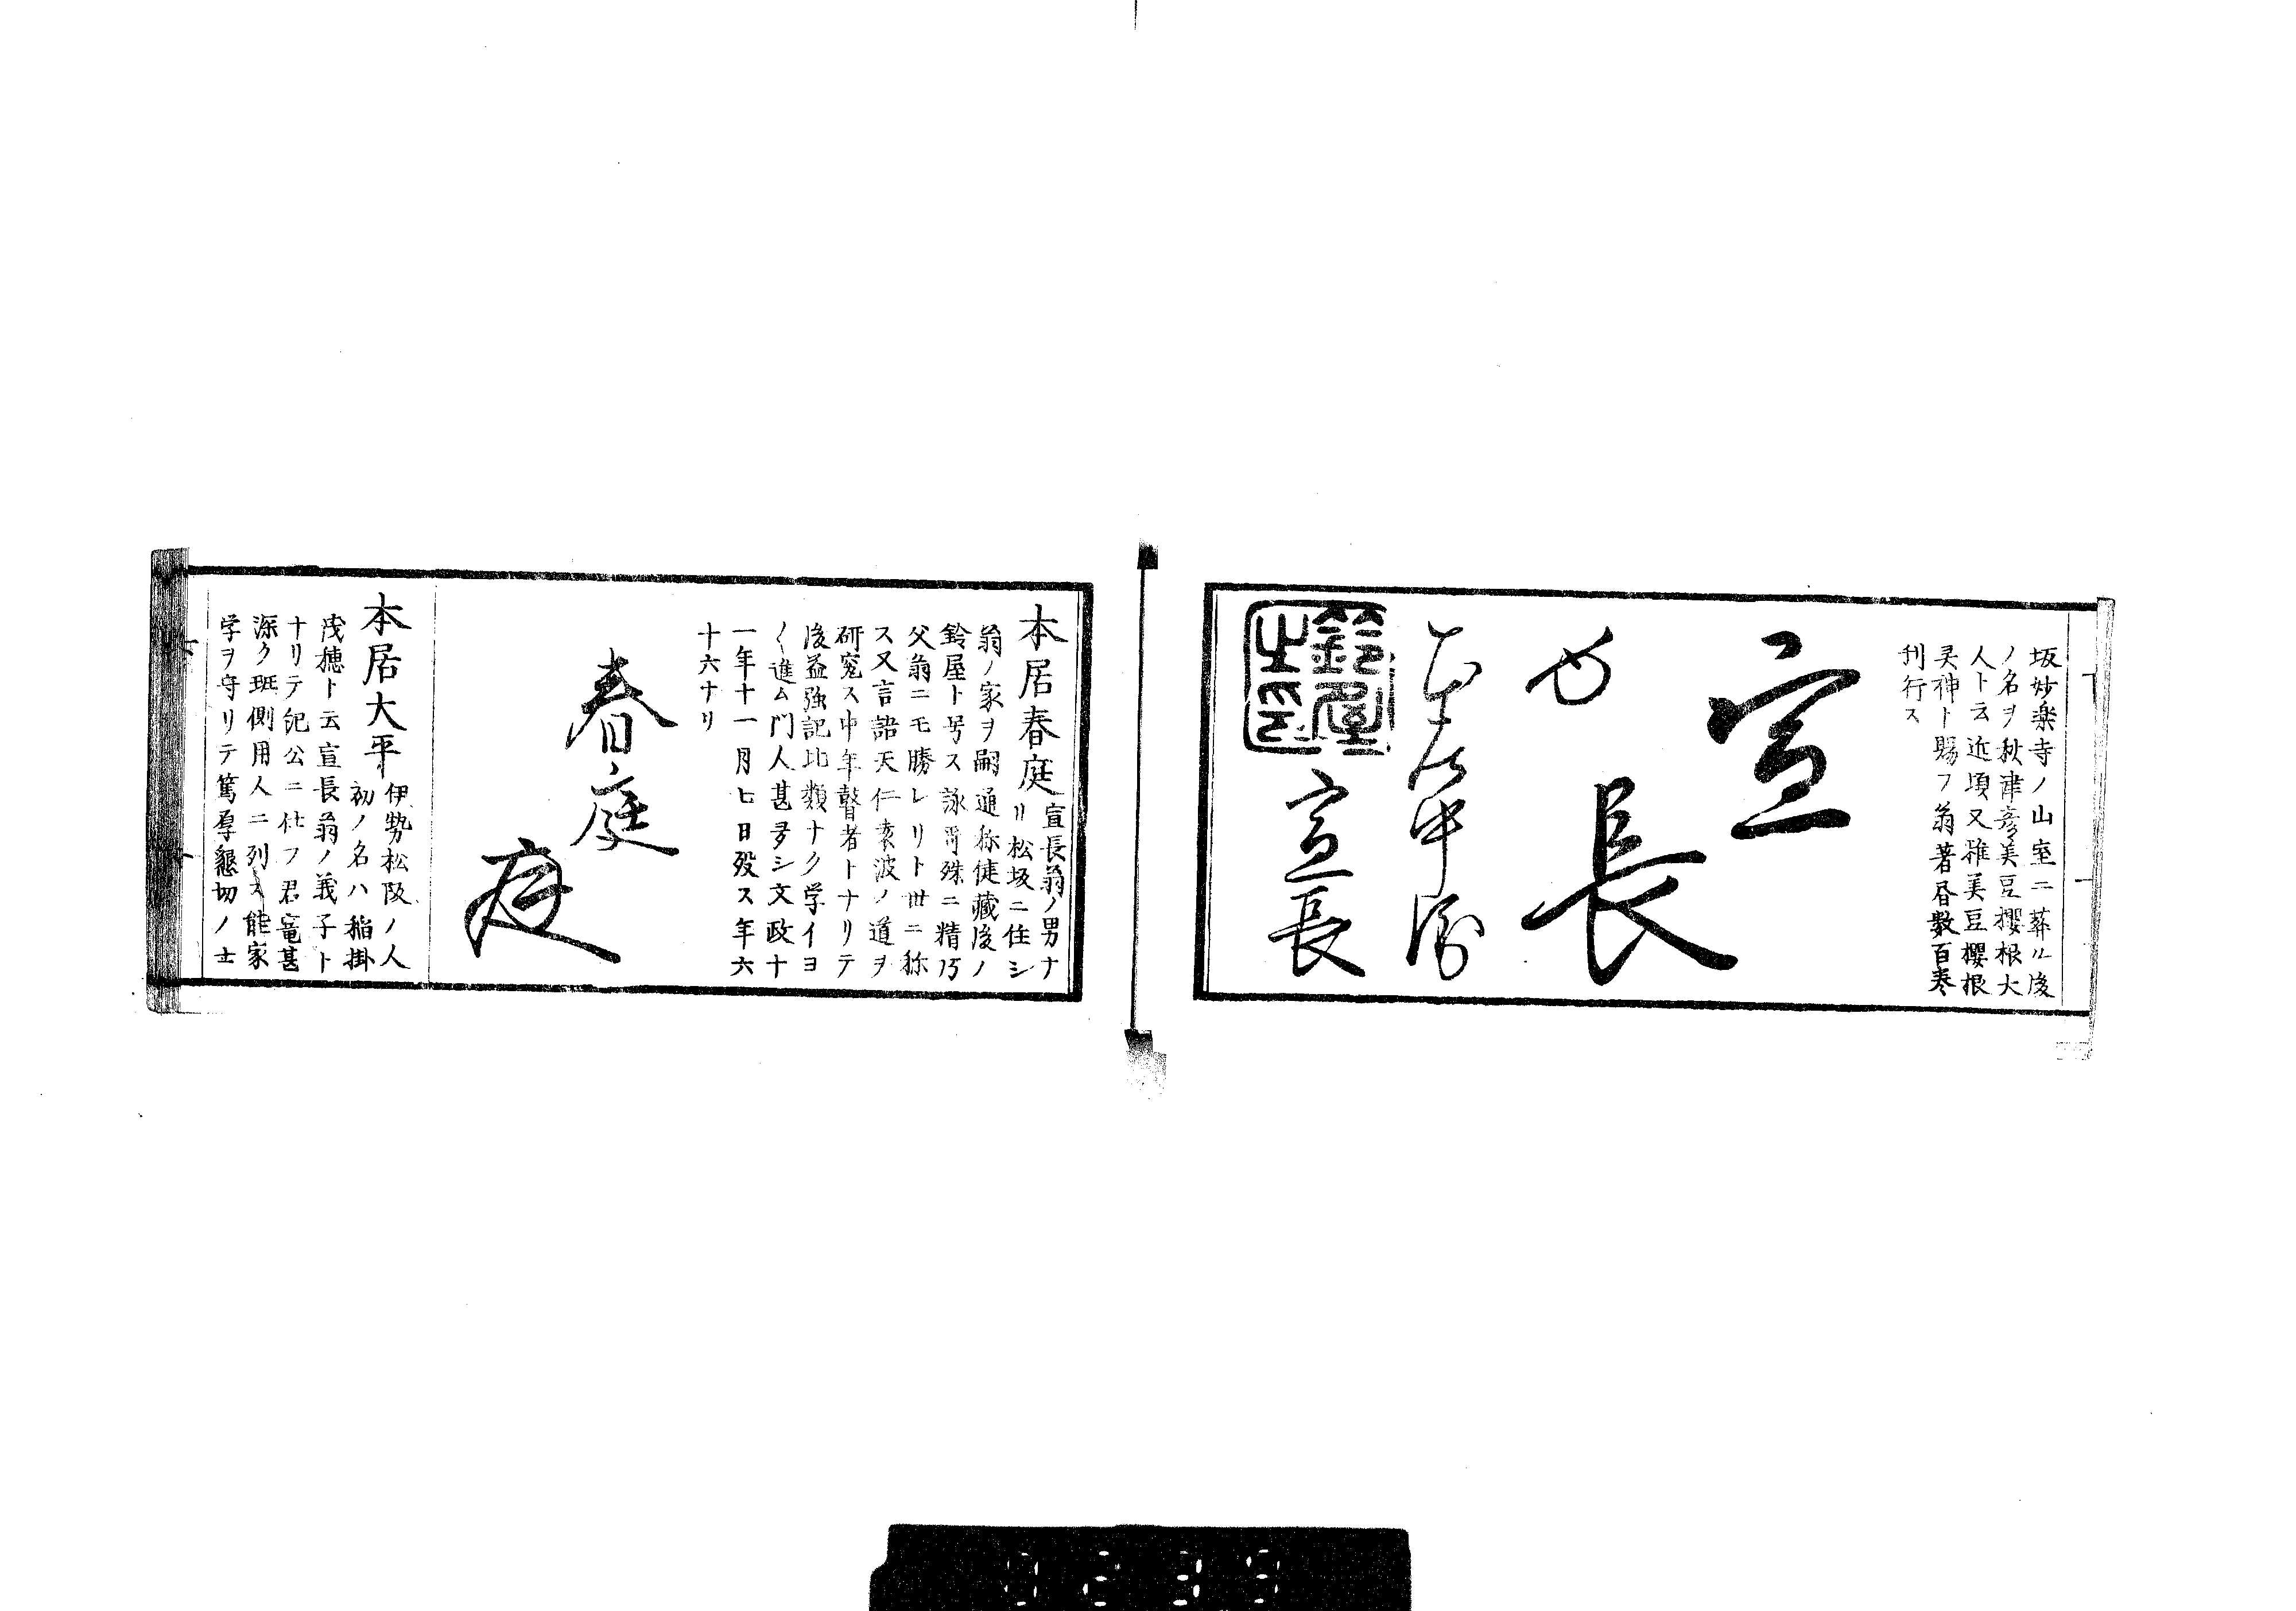 坂妙楽寺ノ山室ニ葬ル後
ノ名ヲ秋津彦美豆櫻根大
人ト云近頃又雅美豆櫻根
灵神ト賜フ翁著昏数百巻
刊行ス
宣
長
宣長
鈴屋
之印
本居春庭
宣長翁ノ男ナ
リ松坂ニ住シ
翁ノ家ヲ嗣通称健藏後ノ
鈴屋ト号ス詠哥殊ニ精巧
父翁ニモ勝レリト世ニ称
ス又言語天仁袁波ノ道ヲ
研究ス中年瞽者トナリテ
後益強記比類ナク学イヨ
〱進ム門人甚多シ文政十
一年十一月七日歿ス年六
十六ナリ
春庭
庭
本居大平
伊勢松阪ノ人
初ノ名ハ稲掛
茂穂ト云宣長翁ノ義子ト
ナリテ紀公ニ仕フ君寵甚
深ク班側用人ニ列ス能家
学ヲ守リテ篤厚懇切ノ士